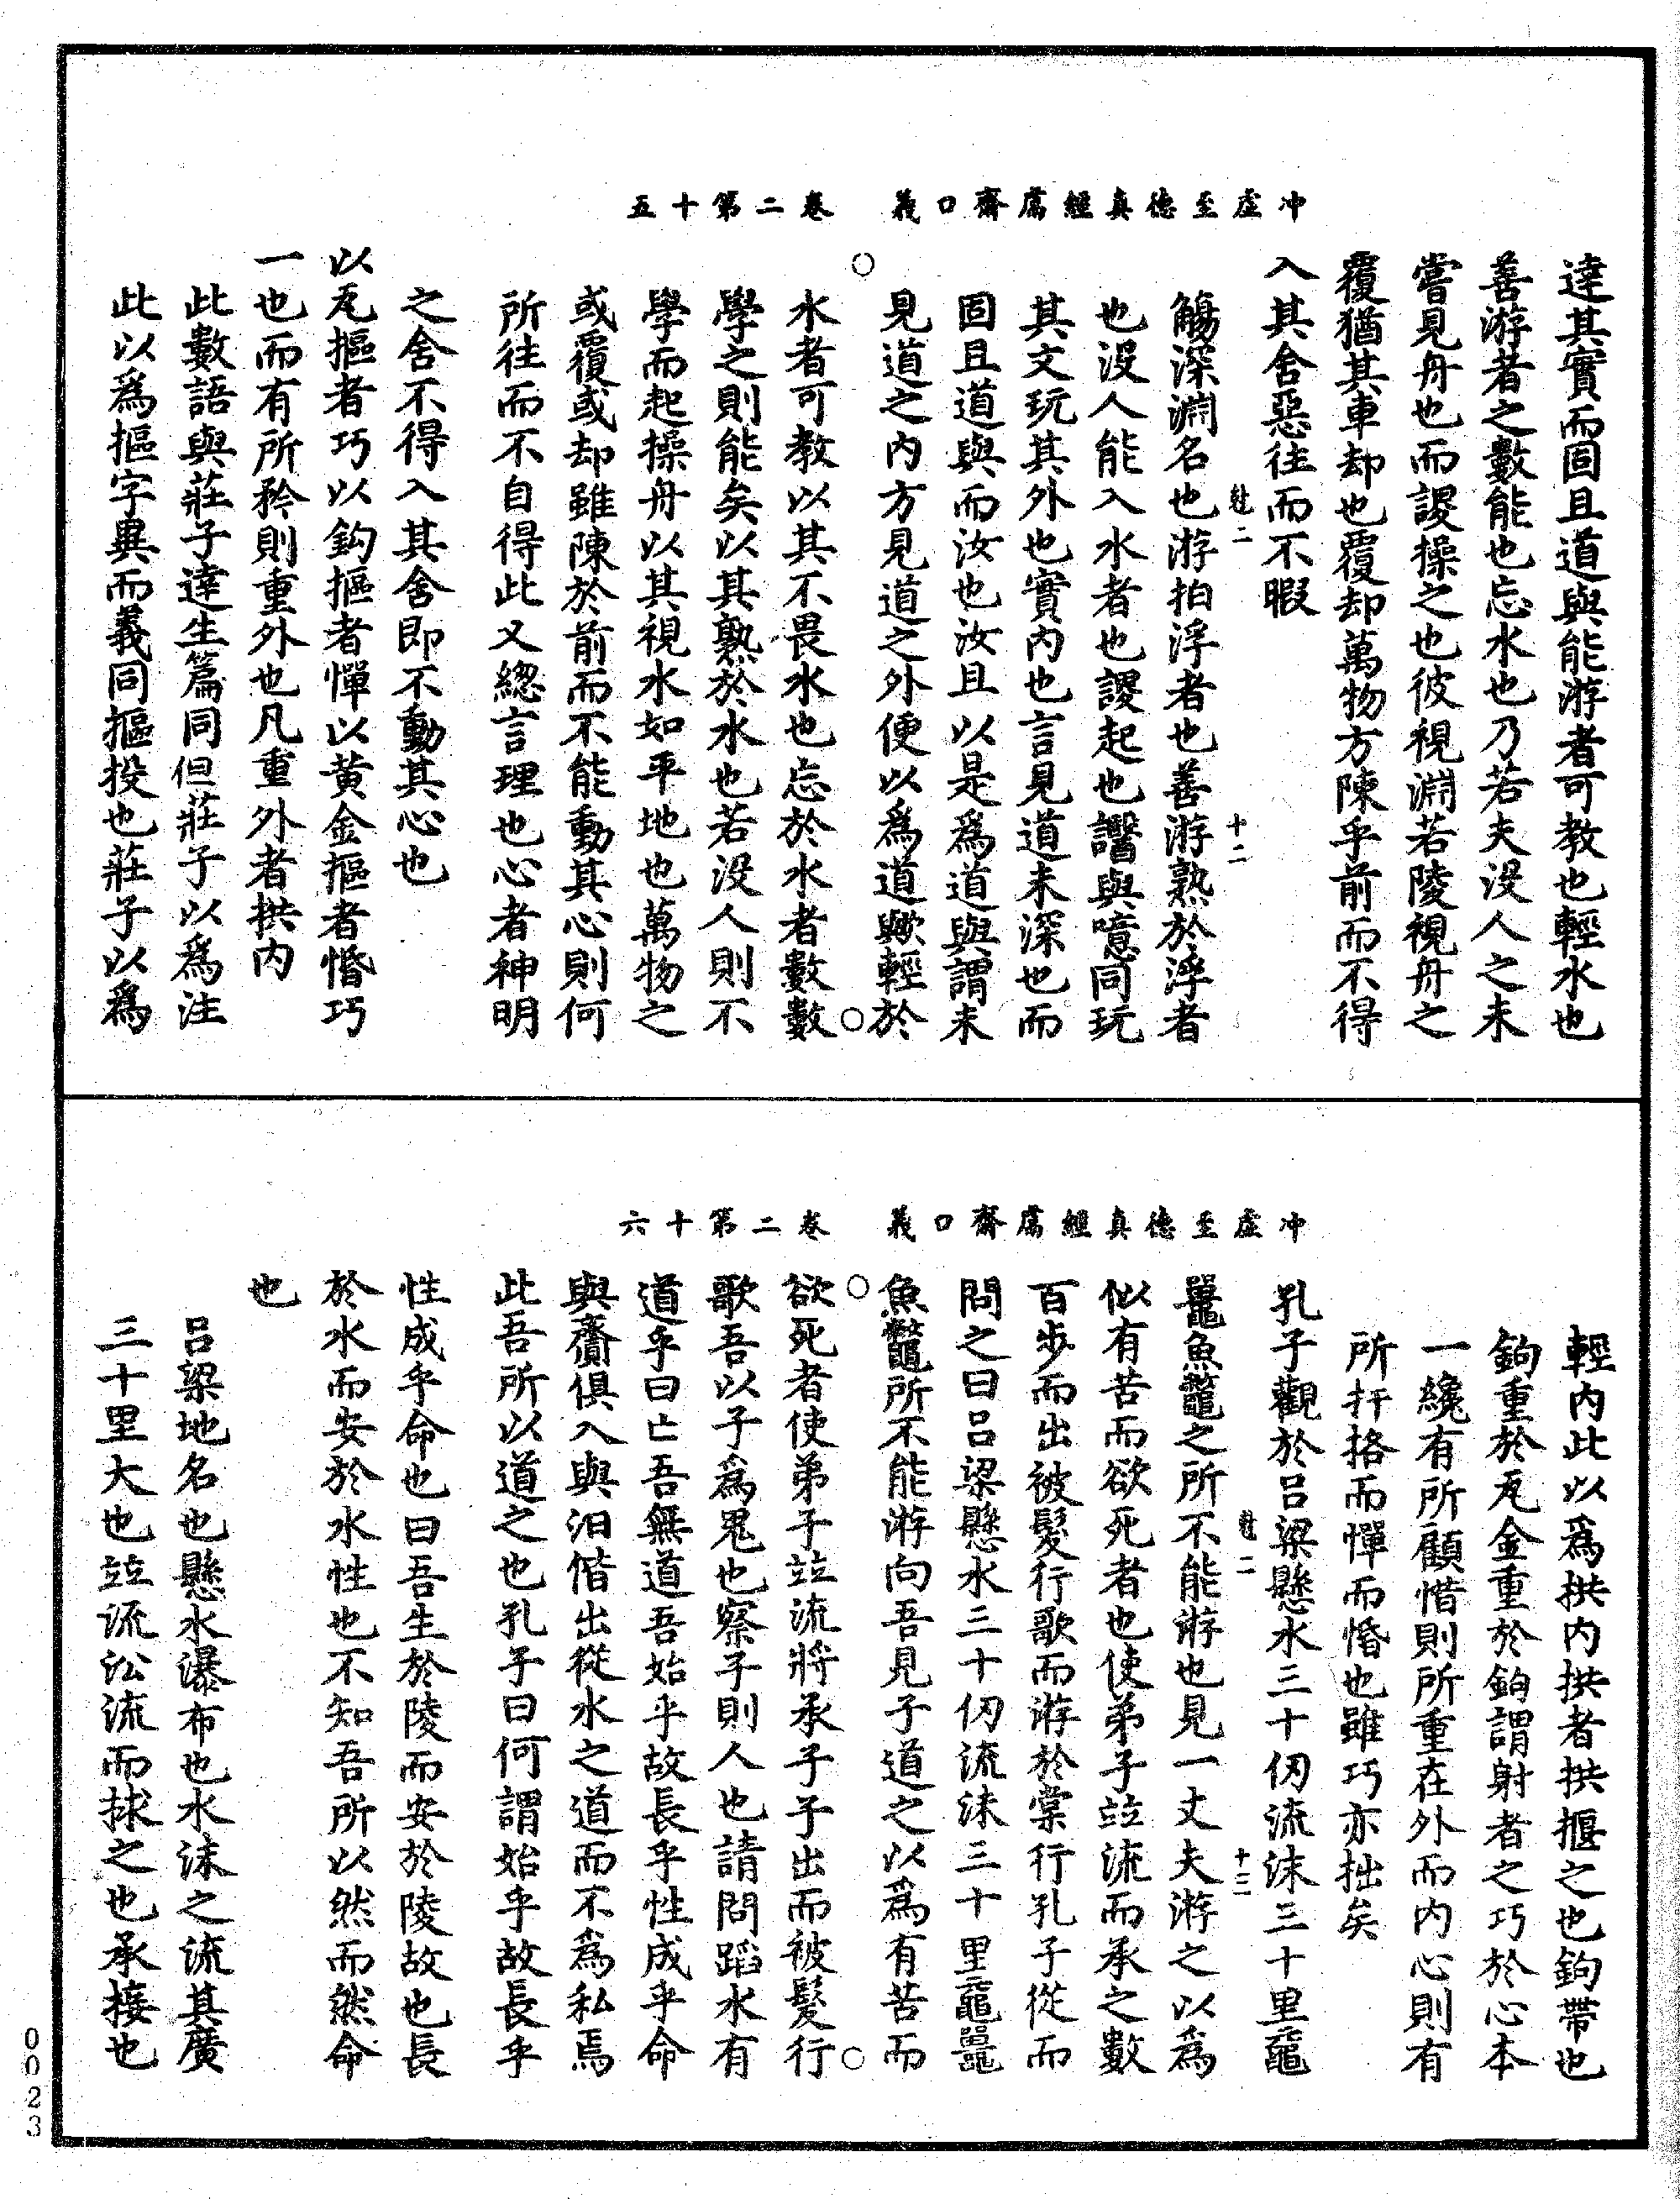 冲虛至德真經鬳齋口義　卷二第十五
達其實而固且道與能游者可教也輕水也
善游者之數能也忘水也乃若夫没人之未
嘗見舟也而謖操之也彼視淵若陵視舟之
覆猶其車却也覆却萬物方陳乎前而不得
入其舍惡往而不暇
觴深淵名也游拍浮者也善游熟於浮者
也没人能入水者也謖起也譩與噫同玩
其文玩其外也實内也言見道未深也而
固且道與而汝也汝且以是爲道與謂未
見道之内方見道之外便以爲道歟輕於
水者可教以其不畏水也忘於水者數數
學之則能矣以其熟於水也若没人則不
學而起操舟以其視水如平地也萬物之
或覆或却雖陳於前而不能動其心則何
所往而不自得此又緫言理也心者神明
之舍不得入其舍即不動其心也
以瓦摳者巧以鈎摳者憚以黄金摳者惛巧
一也而有所矜則重外也凡重外者拱内
此數語與莊子達生篇同但莊子以爲注
此以爲摳字異而義同摳投也莊子以爲
冲虛至德真經鬳齋口義　卷二第十六
輕内此以爲拱内拱者拱揠之也鉤帶也
鉤重於瓦金重於鉤謂射者之巧於心本
一纔有所顧惜則所重在外而内心則有
所扞挌而憚而惛也雖巧亦拙矣
孔子觀於吕梁懸水三十仞流沫三十里黿
鼉魚鼈之所不能游也見一丈夫游之以爲
似有苦而欲死者也使弟子竝流而承之數
百步而出被髮行歌而游於棠行孔子從而
問之曰吕梁懸水三十仞流沫三十里黿鼉
魚鼈所不能游向吾見子道之以爲有苦而
欲死者使弟子竝流將承子子出而被髮行
歌吾以子爲鬼也察子則人也請問蹈水有
道乎曰亡吾無道吾始乎故長乎性成乎命
與齎俱入與汩偕出從水之道而不爲私焉
此吾所以道之也孔子曰何謂始乎故長乎
性成乎命也曰吾生於陵而安於陵故也長
於水而安於水性也不知吾所以然而然命
也
吕梁地名也懸水瀑布也水沫之流其廣
三十里大也竝流㳂流而捄之也承接也
0023